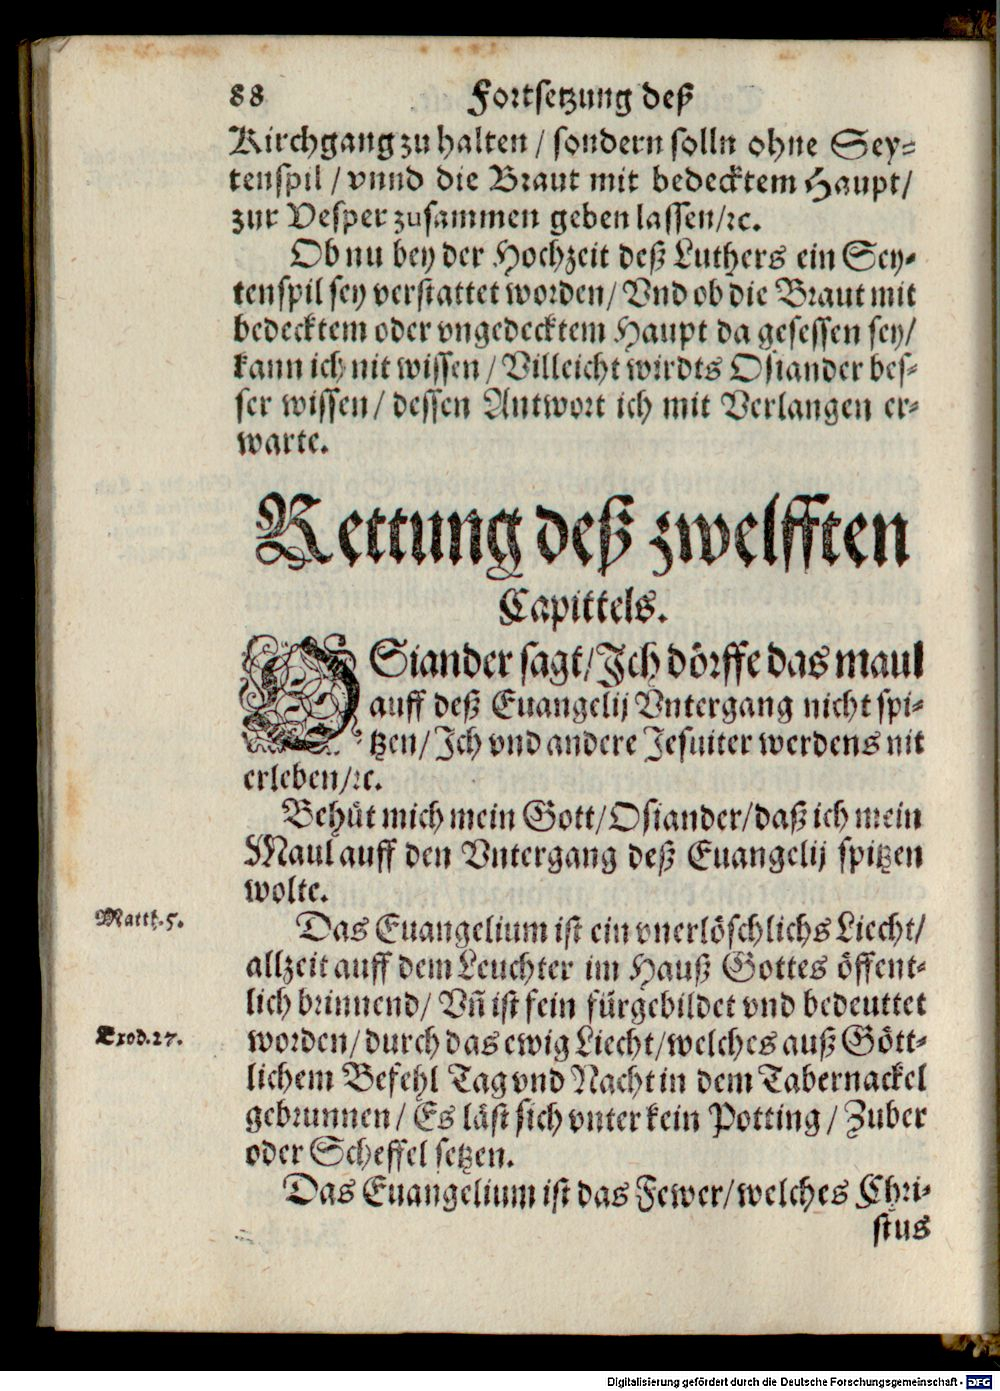 88 Fortsetzung deß
Kirchgang zu halten / sondern solln ohne Sey-
tenspil / vnnd die Braut mit bedecktem Haupt /
zur Vesper zusammen geben lassen / ꝛc.
Ob nu bey der Hochzeit deß Luthers ein Sey-
tenspil sey verstattet worden / Vnd ob die Braut mit
bedecktem oder vngedecktem Haupt da gesessen sey /
kann ich nit wissen / Villeicht wirdts Osiander bes-
ser wissen / dessen Antwort ich mit Verlangen er-
warte.
Rettung deß zwelfften
Capittels.
OSiander sagt / Jch dörffe das maul
auff deß Euangelij Vntergang nicht spi-
tzen / Jch vnd andere Jesuiter werdens nit
erleben / ꝛc.
Behüt mich mein Gott / Osiander / daß ich mein
Maul auff den Vntergang deß Euangelij spitzen
wolte.
Matth. 5.
Das Euangelium ist ein vnerlöschlichs Liecht /
allzeit auff dem Leuchter im Hauß Gottes öffent-
lich brinnend / Vñ ist fein fürgebildet vnd bedeuttet
Exod. 27.
worden / durch das ewig Liecht / welches auß Gött-
lichem Befehl Tag vnd Nacht in dem Tabernackel
gebrunnen / Es läst sich vnter kein Potting / Zuber
oder Scheffel setzen.
Das Euangelium ist das Fewer / welches Chri-
stus
Digitalisierung gefördert durch die Deutsche Forschungsgemeinschaft - DFG